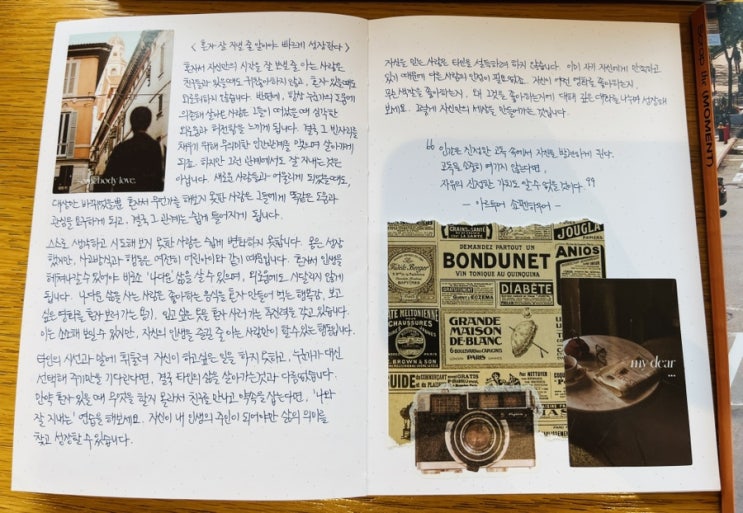 < 혼자 잘 지낼 줄 알아야 빠르게 성장한다 >
혼자서 자신만의 시간을 잘 보낼 줄 아는 사람은
친구들과 있을때도 귀찮아하지 않고, 혼자 있을때도
외로워하지 않습니다. 반면에, 항상 누군가의 도움에
의존해 살아온 사람은 그들이 떠났을 때 심각한
외로움과 허전함을 느끼게 됩니다. 결국 그 빈자리를
채우기 위해 무의미한 인간관계를 맺으며 살아가게
되죠. 하지만 그런 관계에서도 잘 지내는것은
아닙니다. 새로운 사람들과 어울리게 되었을때도,
대상만 바뀌었을뿐 혼자서 무언가를 해보지 못한 사람은 그들에게 똑같은 도움과
관심을 요구하게 되고, 결국 그 관계는 쉽게 틀어지게 됩니다.
스스로 생각하고 시도해 보지 못한 사람은 쉽게 변화하지 못합니다. 몸은 성장
했지만, 사고방식과 행동은 여전히 어린아이와 같기 때문입니다. 혼자서 인생을
헤쳐나갈 수 있어야 비로소 '나다운' 삶을 살 수 있으며, 외로움에도 시달리지 않게
됩니다. 나다운 삶을 사는 사람은 좋아하는 음식을 혼자 만들어 먹는 행복감, 보고
싶은 영화를 혼자 보러가는 용기, 입고 싶은 옷을 혼자 사러가는 주관력을 갖고 있죠.
이는 소소해 보일 수 있지만, 자신의 인생을 즐길 줄 아는 사람만이 할 수 있는 행동입니다.
타인의 시선과 말에 휘둘려 자신이 하고싶은 일을 하지 못하고, 누군가가 대신
선택해 주기만을 기다린다면, 결국 타인의 삶을 살아가는것과 다름없습니다.
만약 혼자 있을 때 무엇을 할지 몰라서 친구를 만나고 약속을 잡는다면, '나와
잘 지내는' 연습을 해보세요. 자신이 내 인생의 주인이 되어야만 삶의 의미를
찾고 성장할 수 있습니다.
somebody love.
자신을 믿는 사람은 타인을 설득하려 하지 않습니다. 이미 자기 자신에게 만족하고
있기 때문에 다른 사람의 인정이 필요없죠. 자신이 어떤 영화를 좋아하는지,
무슨 색깔을 좋아하는지, 왜 그것을 좋아하는지에 대해 깊은 대화를 나누며 성장해
보세요. 그렇게 자신만의 세상을 만들어가는 것입니다.
“ 인간은 진정한 고독 속에서 자신을 발견하게 된다.
고독을 소중히 여기지 않는다면,
자유의 진정한 가치도 알 수 없을 것이다. ”
- 아르투어 쇼펜하우어 -
GRAINS DE SANTÉ
JOUGLA
DEMANDEZ PARTOUT UN
BONDUNET
VIN TONIQUE AU QUINQUINA
ANIOS
ECZEMA
DIABÈTE
MELTONIENNE
CHAUSSURES
BROWN & SON
GRANDE
MAISON
DE BLANC
6 BOULEVARD DES CAPUCINES
PARIS
GUIDE
my dear
...
(MOMENT)